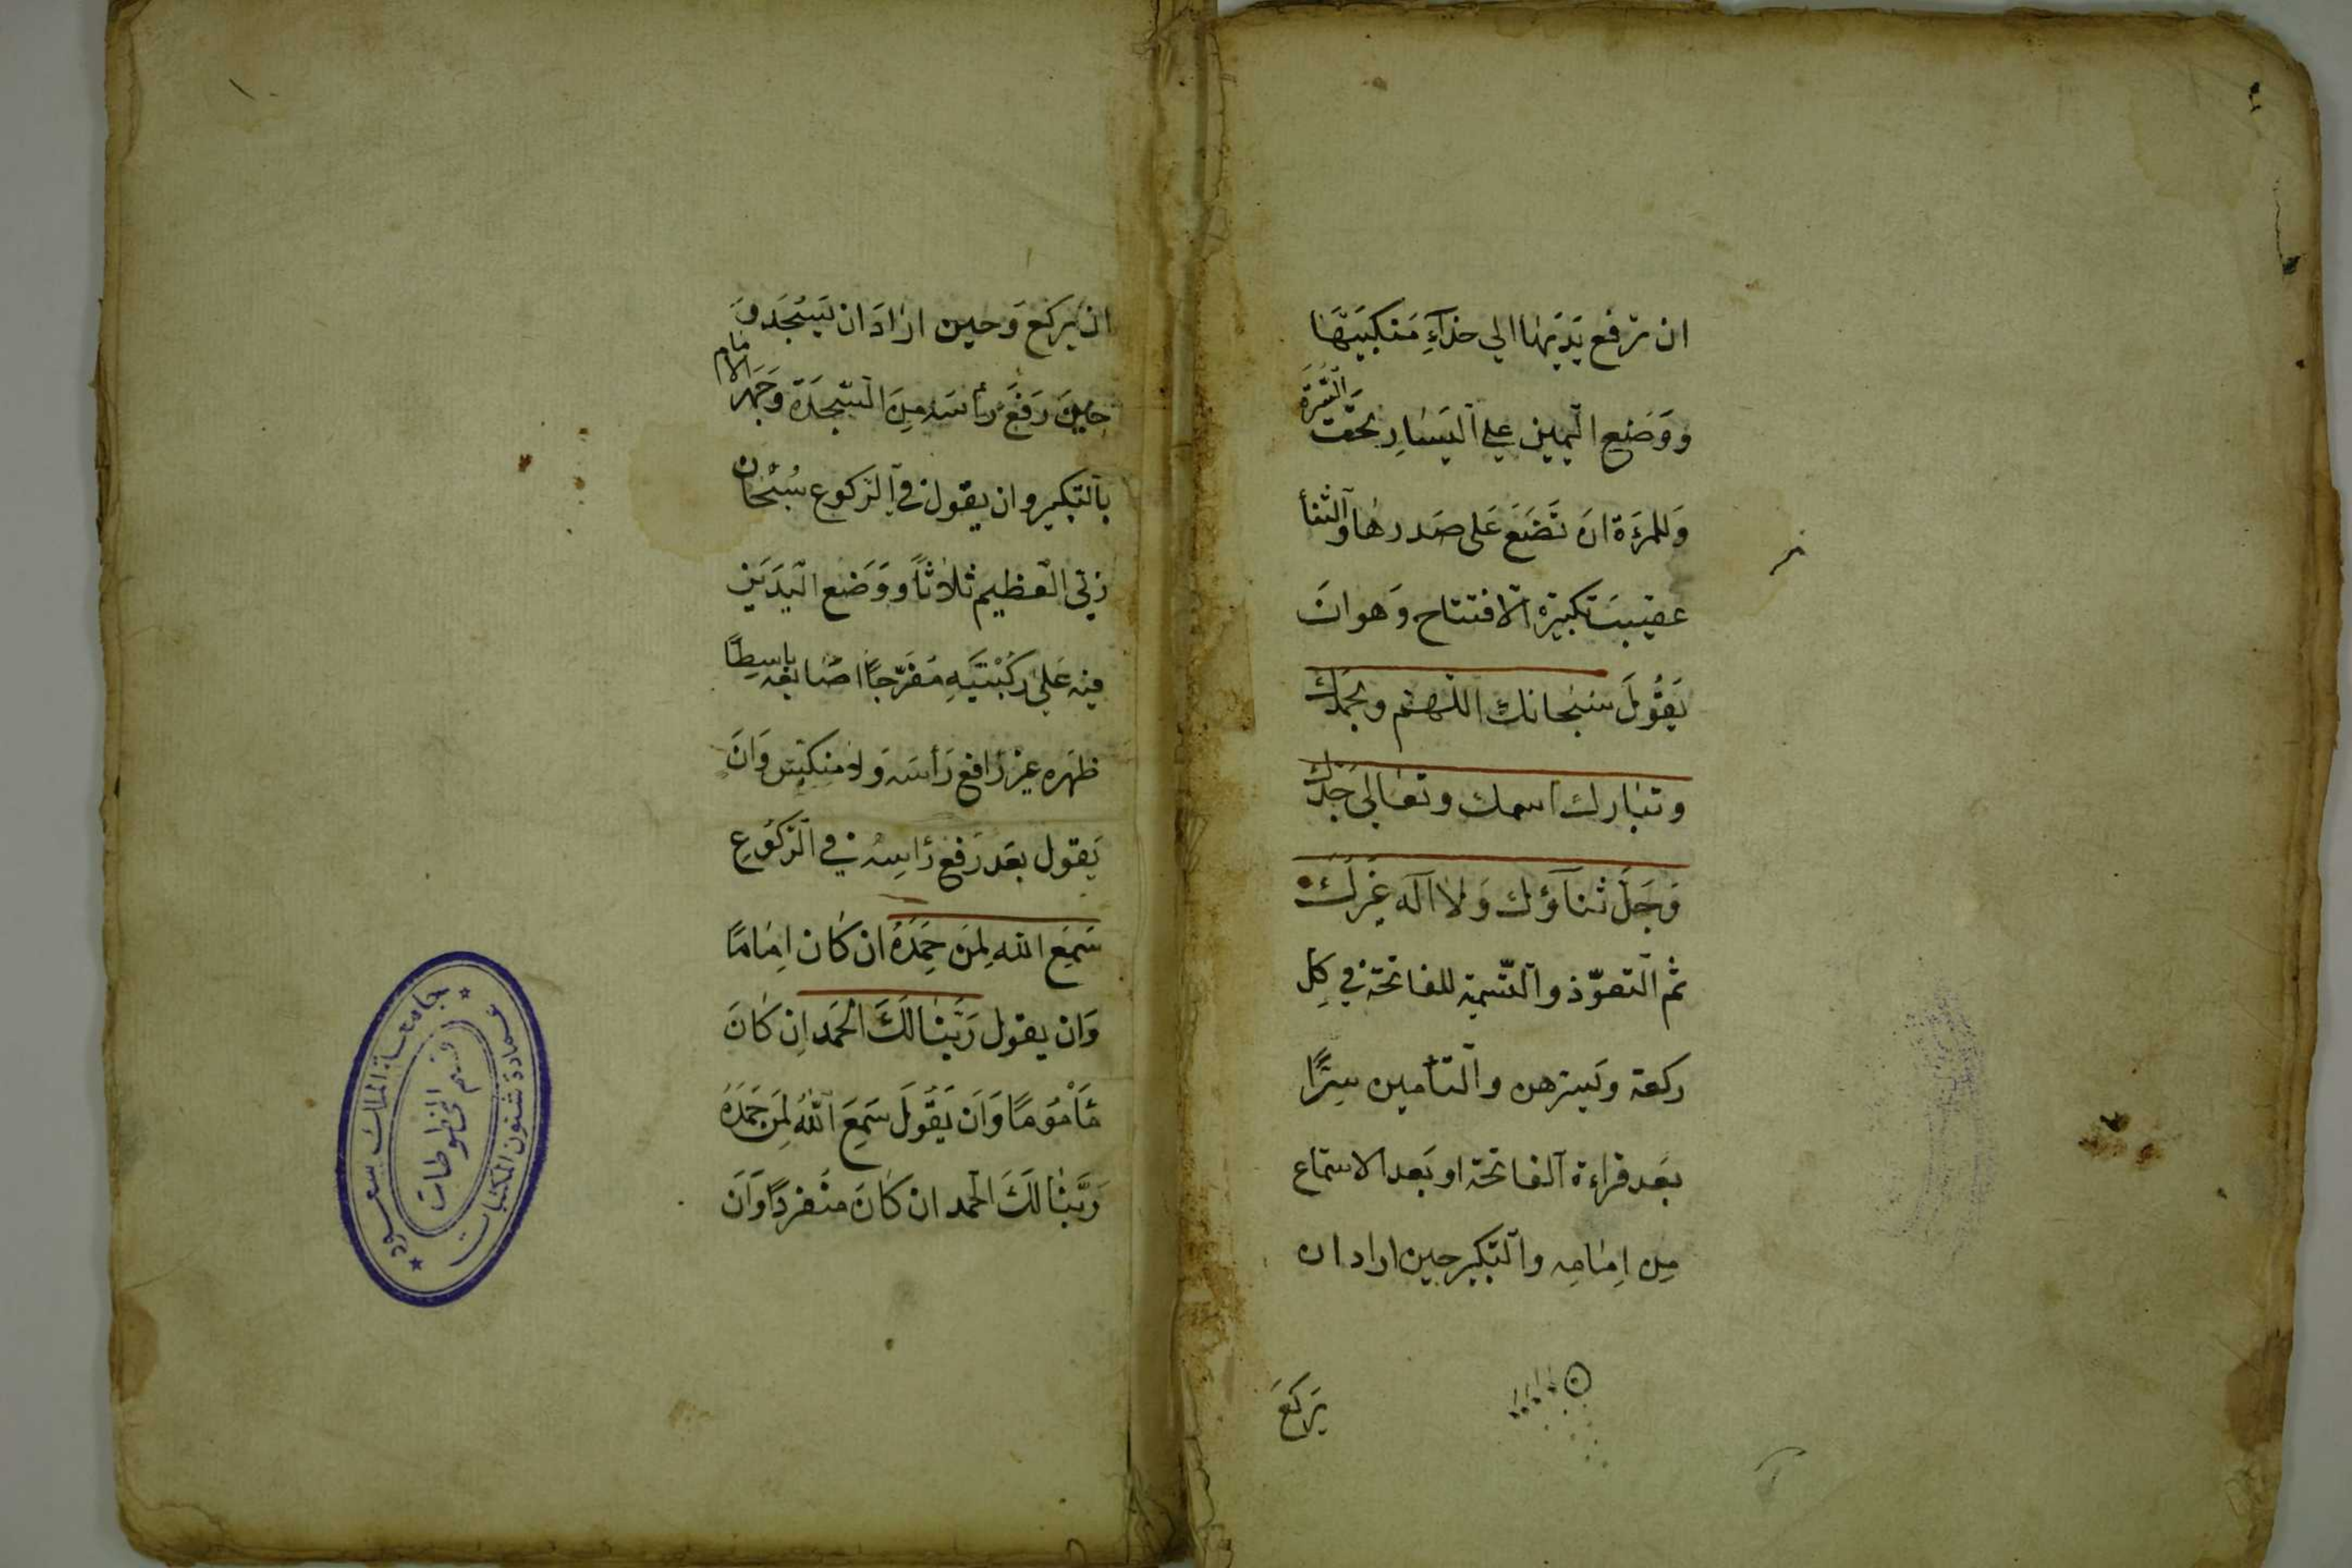 ان ترفع يَدَيها الي حذآءِ مَنكبَيَهَا
ووَضَع اليمين علي اليَسارِ تحَت السُّرَة
وَللمرَءَة ان تَضَعَ عَلى صَدرها والثنأ
عقيبَ تكبيرة الافتتاح وَهو انَ
يَقُولَ سُبْحانك اللهم وبحَمَدك
وتبارك اسمك وتعالى جَدّك
وَجَلَّ ثنآؤك وَلا اله غيَرك
ثم التعوّذ والتّسمية للفاتحة في كِل
ركعة وَيسرّهن والتأمين سِرًّا
بعَد قراءة الفاتحة او بَعد الاستماع
مِن اِمَامِه والتّكبير حين اراد ان
يَركَعَ
ان يركَع وَحين ارَادَ ان يَسْجَد وَ
حِينَ رَفَعَ رأسَه مِنَ السّجَدَة وَجَهَر الامام
بالتكبير وان يقول في الرّكوع سُبْحان
ربّي العظيم ثلاثاً ووَضَع اليَدَيَن
فيه عَلى ركُبْتَيَهِ مُفَرّجًا اصَابعَه باسِطًا
ظَهَره غير رَافع رَأسَه وَلا منكّس وَانَ
يَقول بعَد رَفع رَاسِه في الرّكُوعِ
سَمِعَ الله لِمنَ حَمِدَهُ ان كَان اِمَامًا
وَان يقول رَبَّنا لَكَ الحَمَد اِن كَانَ
مَأمُومًا وَاَن يَقُولَ سَمِعَ اللهُ لِمَن حَمِدَهُ
رَبَّنَا لَكَ الحَمد ان كَانَ منُفردًا وَاَنَ
جامعة الملك سعود
عمادة شئون المكتبات
قسم المخطوطات